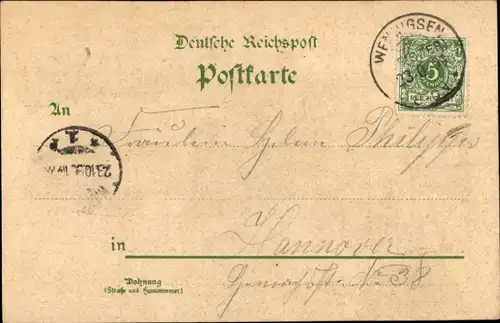 Deutsche Reichspost
WENNIGSEN
Postkarte
5
An
Fräulein Helene Philipps
23.10.9
in
Hannover
38
Wohnung
(Straße und Hausnummer)